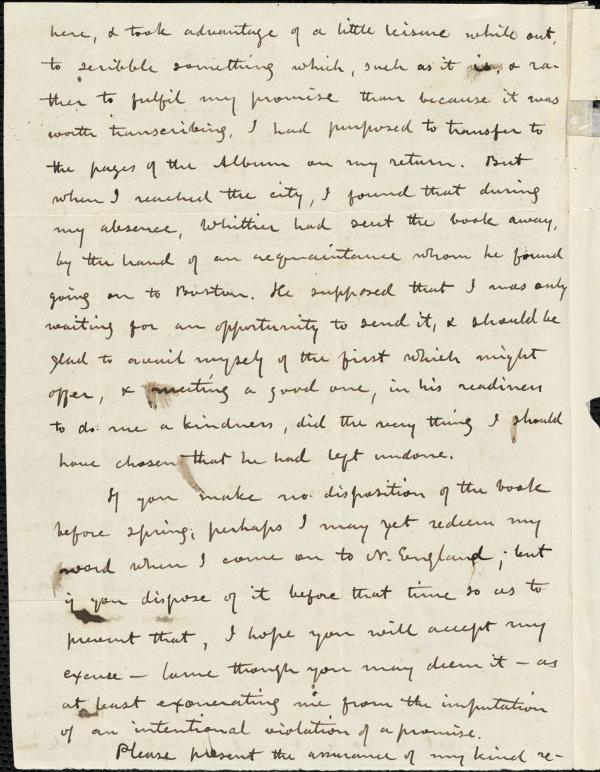 here, & took advantage of a little leisure while out,
to scribble something which, such as it is, & ra-
ther to fulfil my promise than because it was
worth transcribing, I had purposed to transfer to
the pages of the Album on my return. But
when I reached the city, I found that during
my absence, Whittier had sent the book away,
by the hand of an acquaintance whom he found
going on to Boston. He supposed that I was only
waiting for an opportunity to send it, & should be
glad to avail myself of the first which might
offer, & meeting a good one, in his readiness
to do me a kindness, did the very thing I should
have chosen that he had left undone.
If you make no disposition of the book
before spring, perhaps I may yet redeem my
word when I come on to N. England; but
if you dispose of it before that time so as to
prevent that, I hope you will accept my
excuse — lame though you may deem it — as
at least exonerating me from the imputation
of an intentional violation of a promise.
Please present the assurance of my kind re-